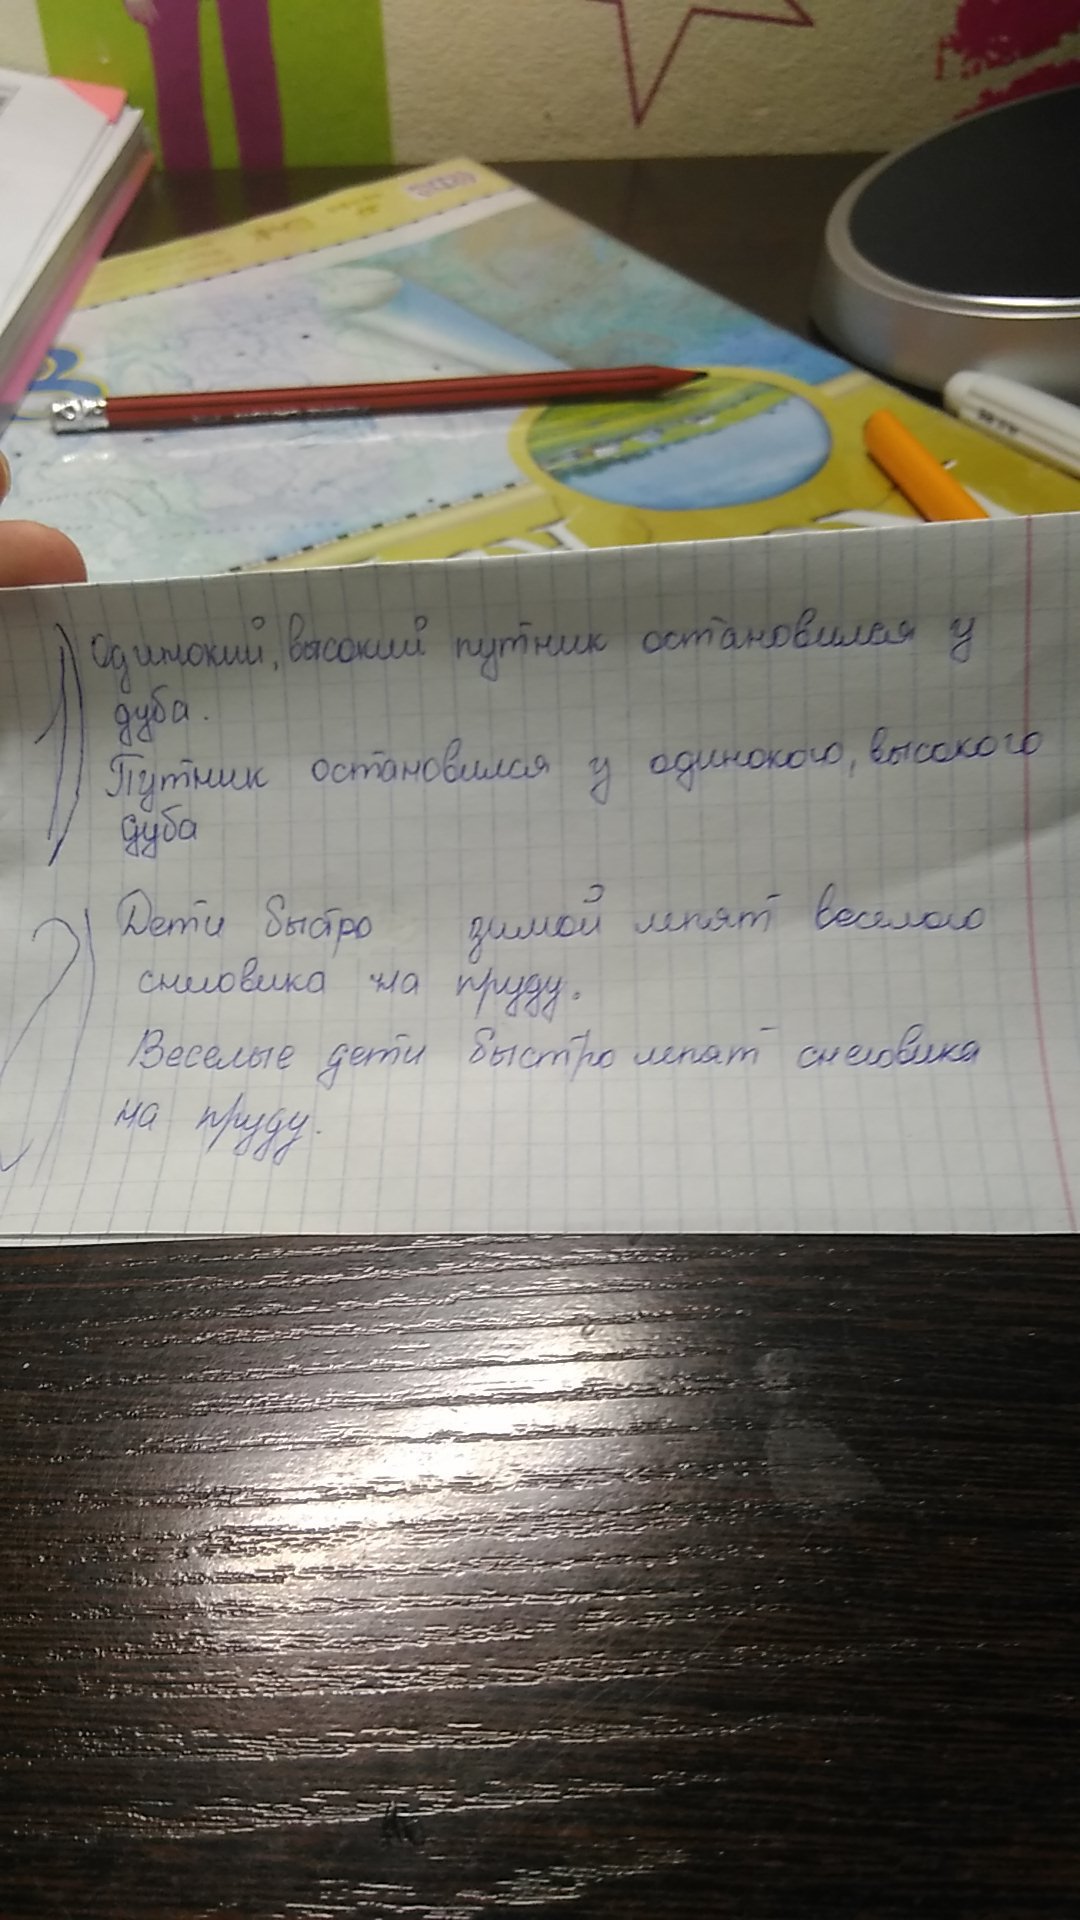 1) Одинокий, высокий путник остановился у
дуба.
Путник остановился у одинокого, высокого
дуба
2) Дети быстро зимой лепят веселого
снеговика на пруду.
Веселые дети быстро лепят снеговика
на пруду.